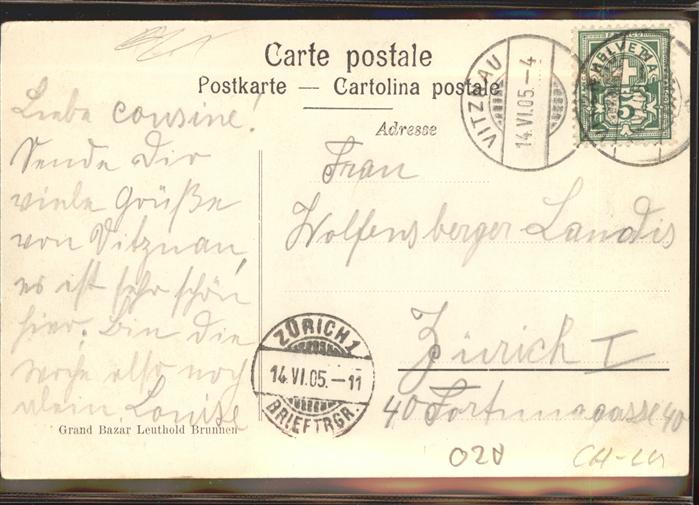 Carte postale
Postkarte — Cartolina postale
Adresse
VITZNAU
14.VI.05.-4
HELVETIA
5
Liebe cousine!
Sende Dir
viele Grüße
von Vitznau,
es ist sehr schön
hier. Bin die
woche also noch
allein. Louise
Frau
Wolfensberger-Landis
Zürich I
40 Fortunagasse 40
ZÜRICH 1
14.VI.05.-11
BRIEFTRGR.
Grand Bazar Leuthold Brunnen